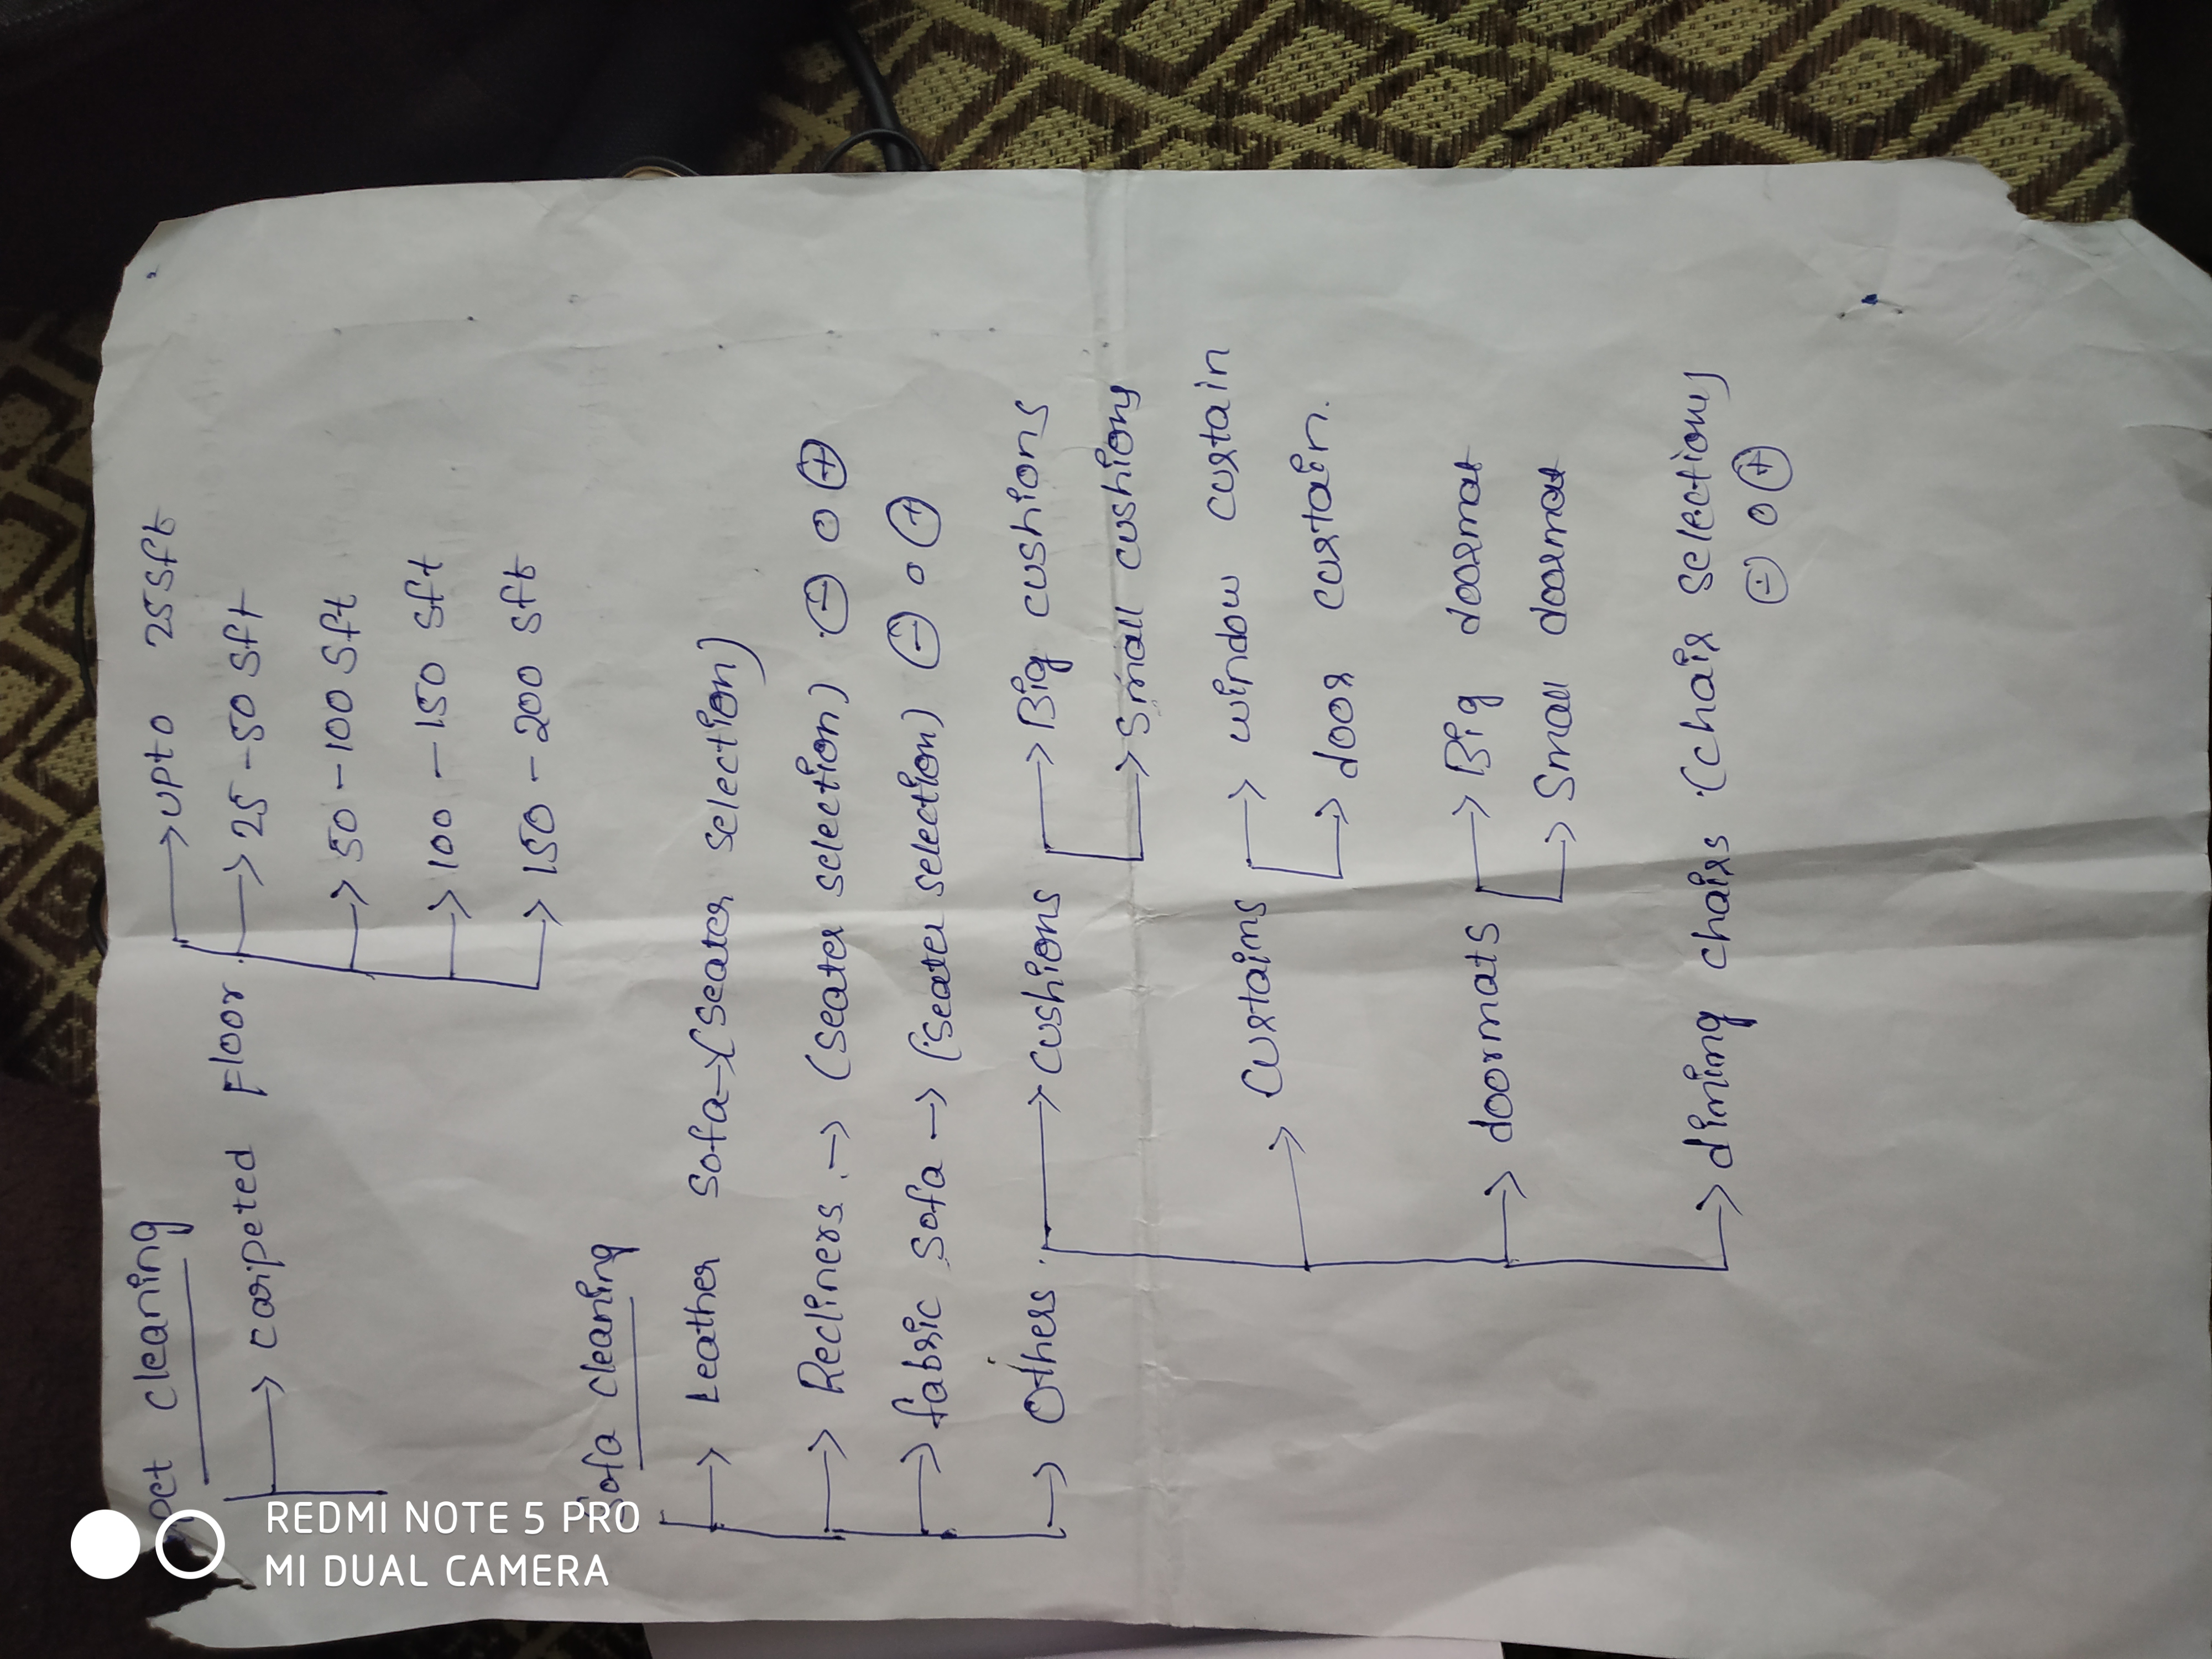 pet cleaning
→ carpeted Floor
→ upto 25 sft
→ 25 - 50 sft
→ 50 - 100 sft
→ 100 - 150 sft
→ 150 - 200 sft
Sofa cleaning
→ Leather sofa → (seater selection)
→ Recliners → (seater selection) - 0 +
→ fabric sofa → (seater selection) - 0 +
→ Others
→ cushions
→ Big cushions
→ Small cushions
→ Curtains
→ window curtain
→ door curtain.
→ doormats
→ Big doormat
→ Small doormat
→ dining chairs (chair selection)
- 0 +
REDMI NOTE 5 PRO
MI DUAL CAMERA